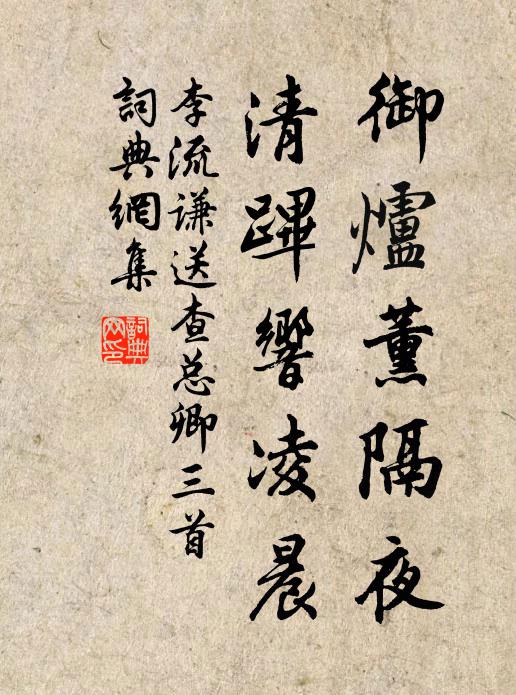 御爐薰隔夜
清蹕響凌晨
李流謙送查总卿三首
詞典網集
詞典網印